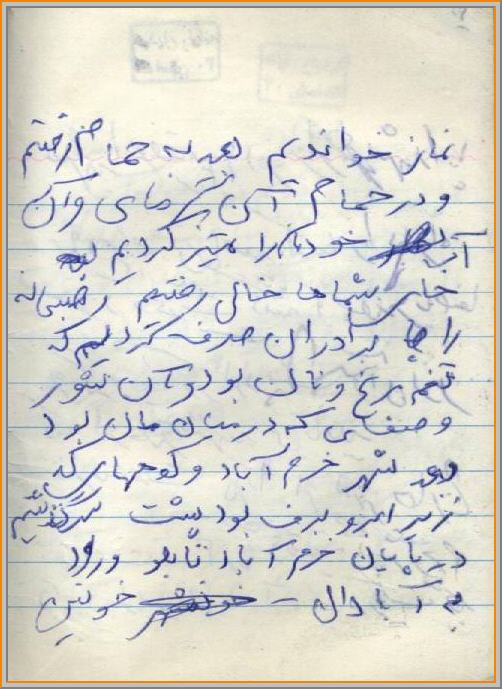 نماز خواندیم بعد به حمام رفتیم
و در حمام آتش گرمای و آن
آب خودمان را تمیز کردیم
جای شماها خالی رفتیم صبحانه
را با برادران صرف کردیم که
تخم مرغ و نان بود و آن شور
و صفایی که در میان مان بود
بعد شهر خرم آباد و کوههای که
زیر ابر و برف بود پشت سر گذاشتیم
در پایان خرم آباد تابلو ورود
به آبادان – خونین